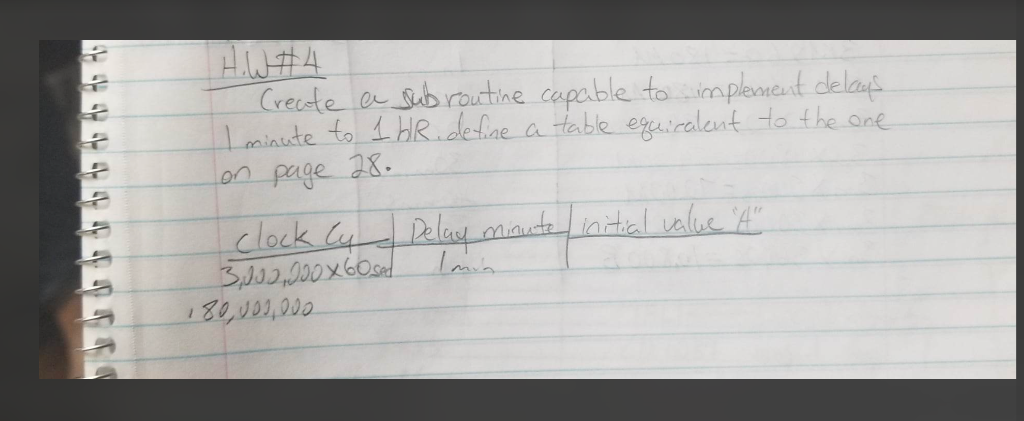 H.W#4
Create a subroutine capable to implement delays
1 minute to 1 HR. define a table equivalent to the one
on page 28.
Clock Cy Delay minute initial value "A"
3,000,000x60sec 1 min
180,000,000